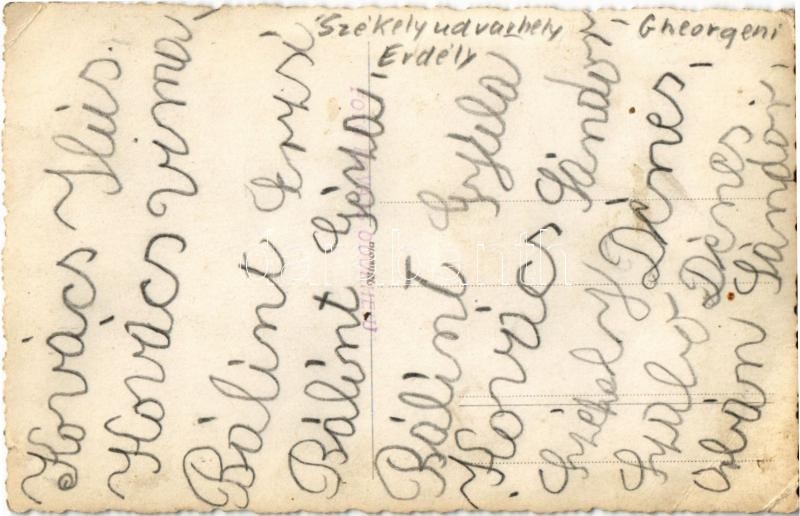 Székelyudvarhely - Gheorgeni
Erdély
Kovács Ilus.
Kovács Irma
Bálint Erzsi
Bálint Géza.
Bálint Gyula
Kovács Sándor
Székely Dénes.
Szabó Dénes
Sándor.
darabanth